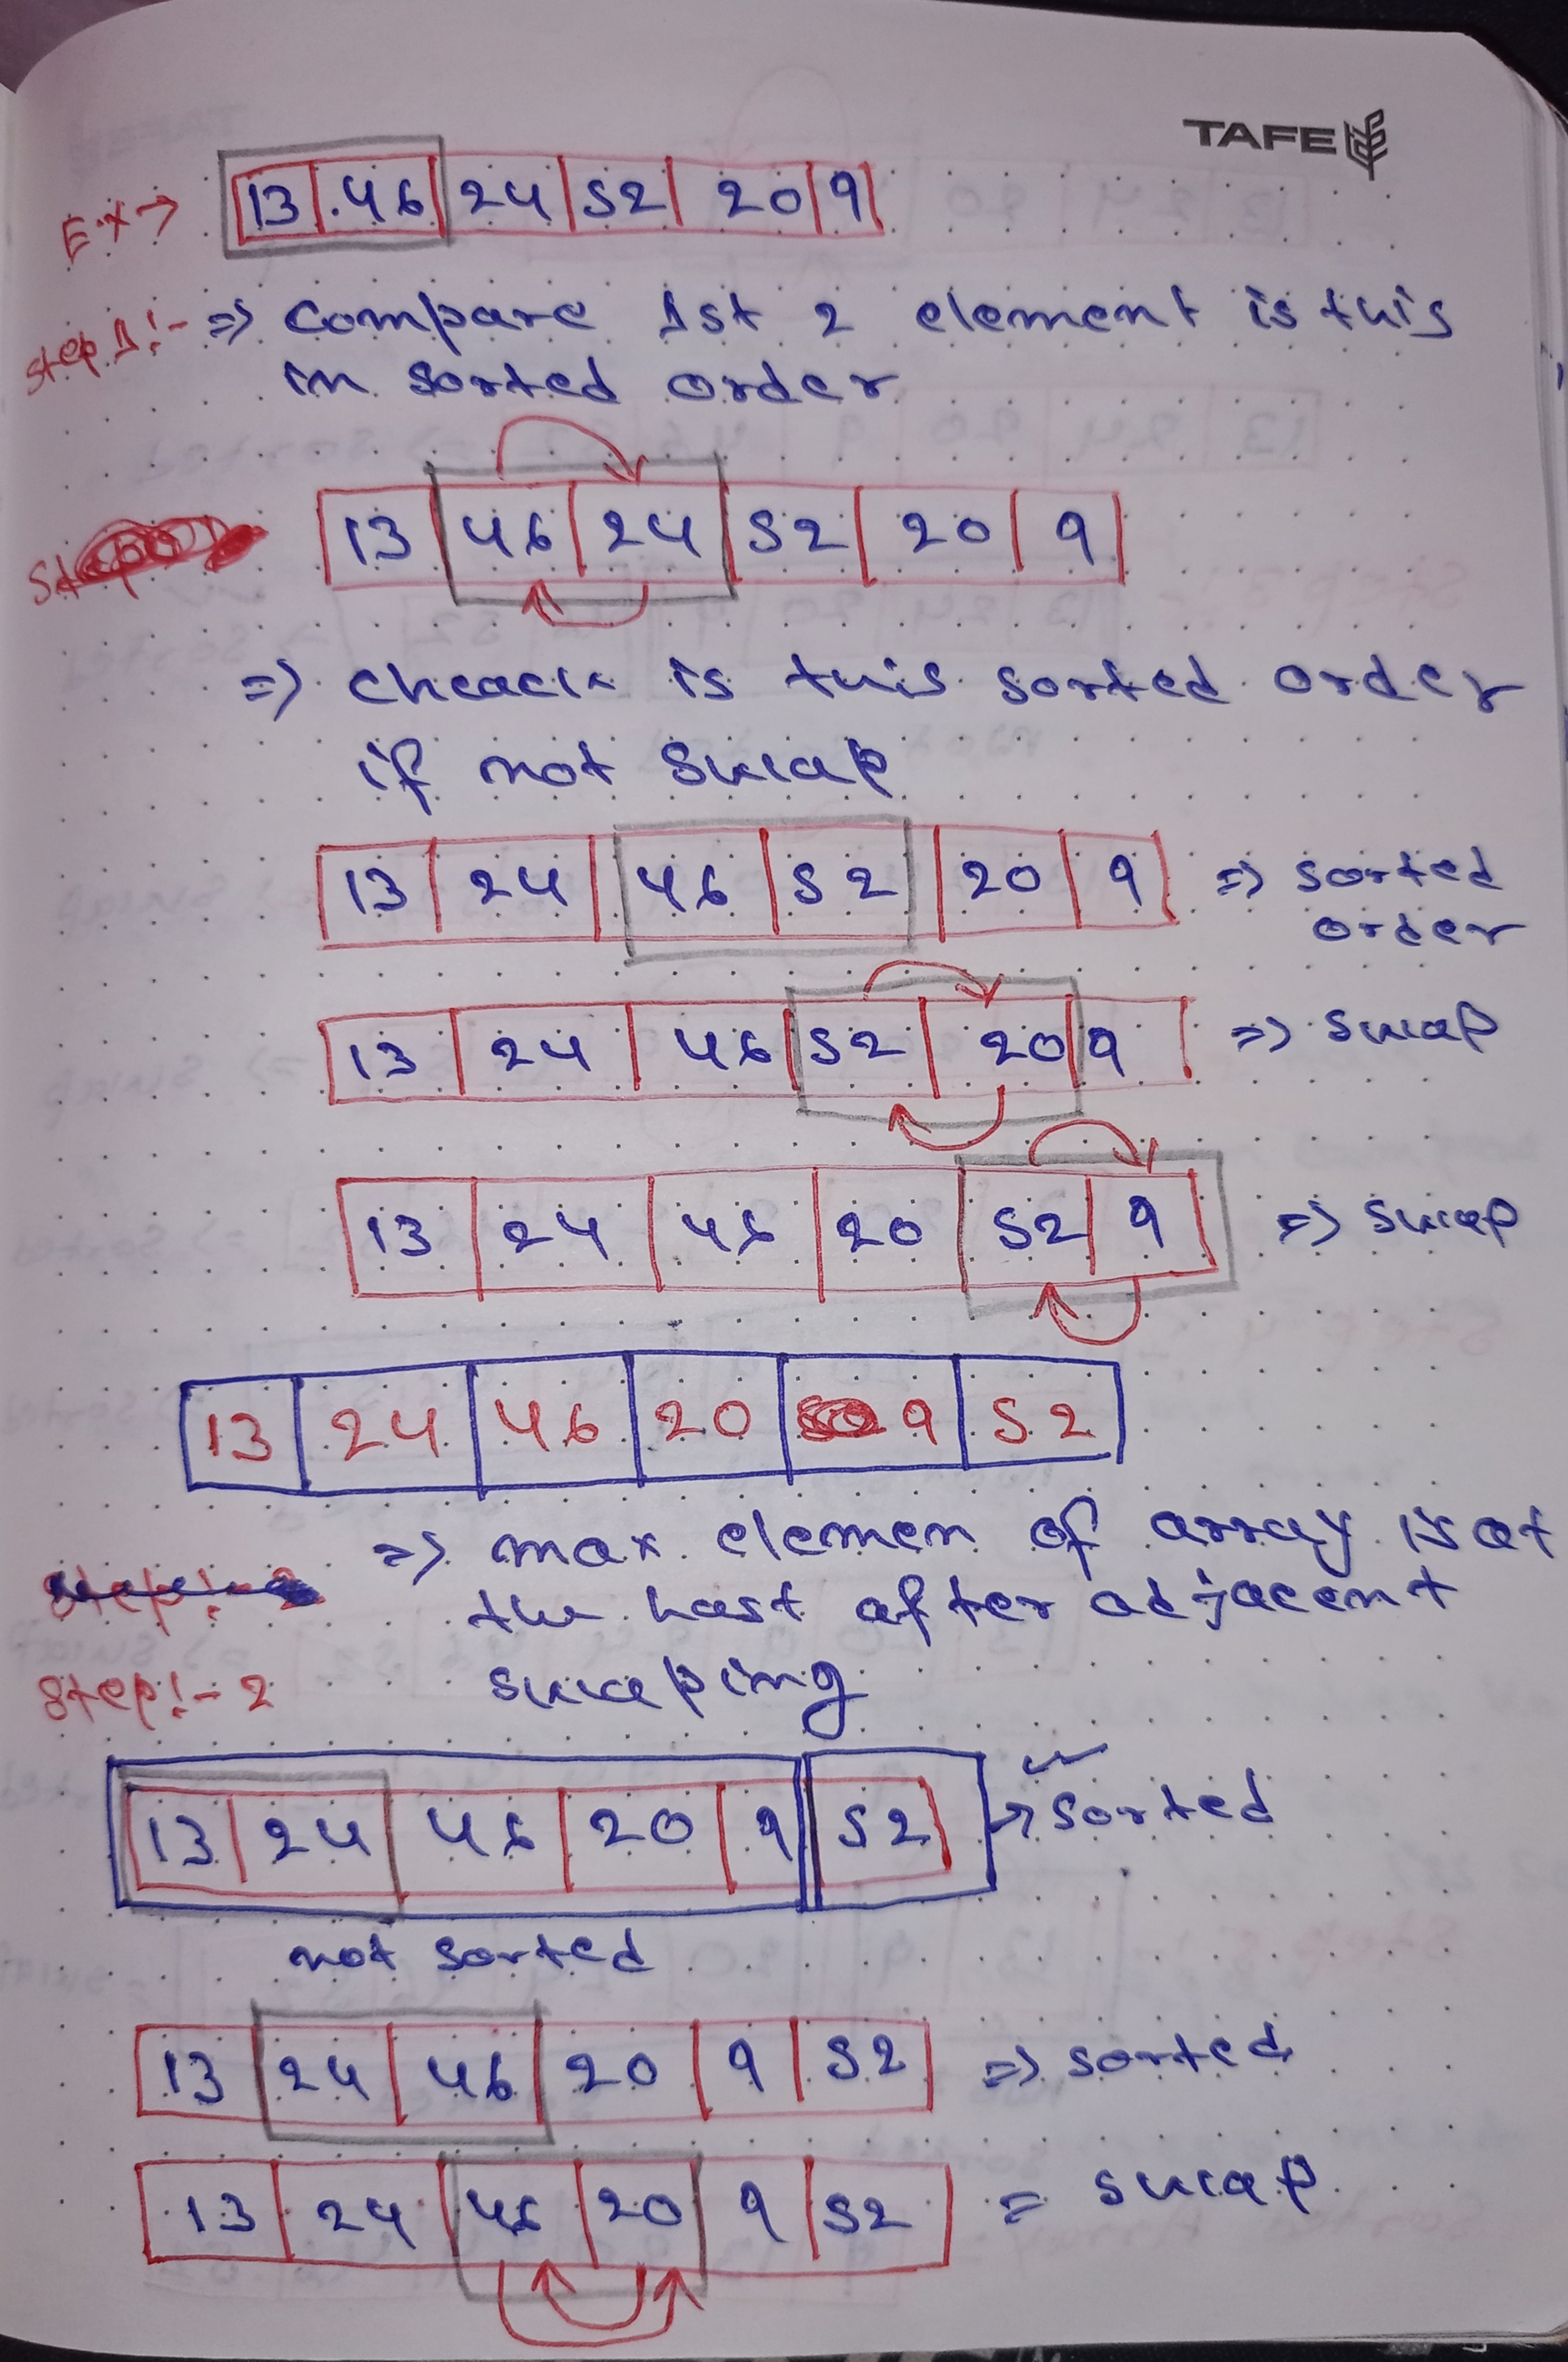 TAFE
Ex → 13 46 24 52 20 9
Step 1:- => Compare 1st 2 element is this
in sorted order
13 46 24 52 20 9
=> cheack is this sorted order
if not swap
13 24 46 52 20 9 => sorted
order
13 24 46 52 20 9 => swap
13 24 46 20 52 9 => swap
13 24 46 20 9 52
=> max elemen of array is at
the last after adjacent
swaping
Step:- 2
13 24 46 20 9 52 → sorted
not sorted
13 24 46 20 9 52 => sorted
13 24 46 20 9 52 = swap